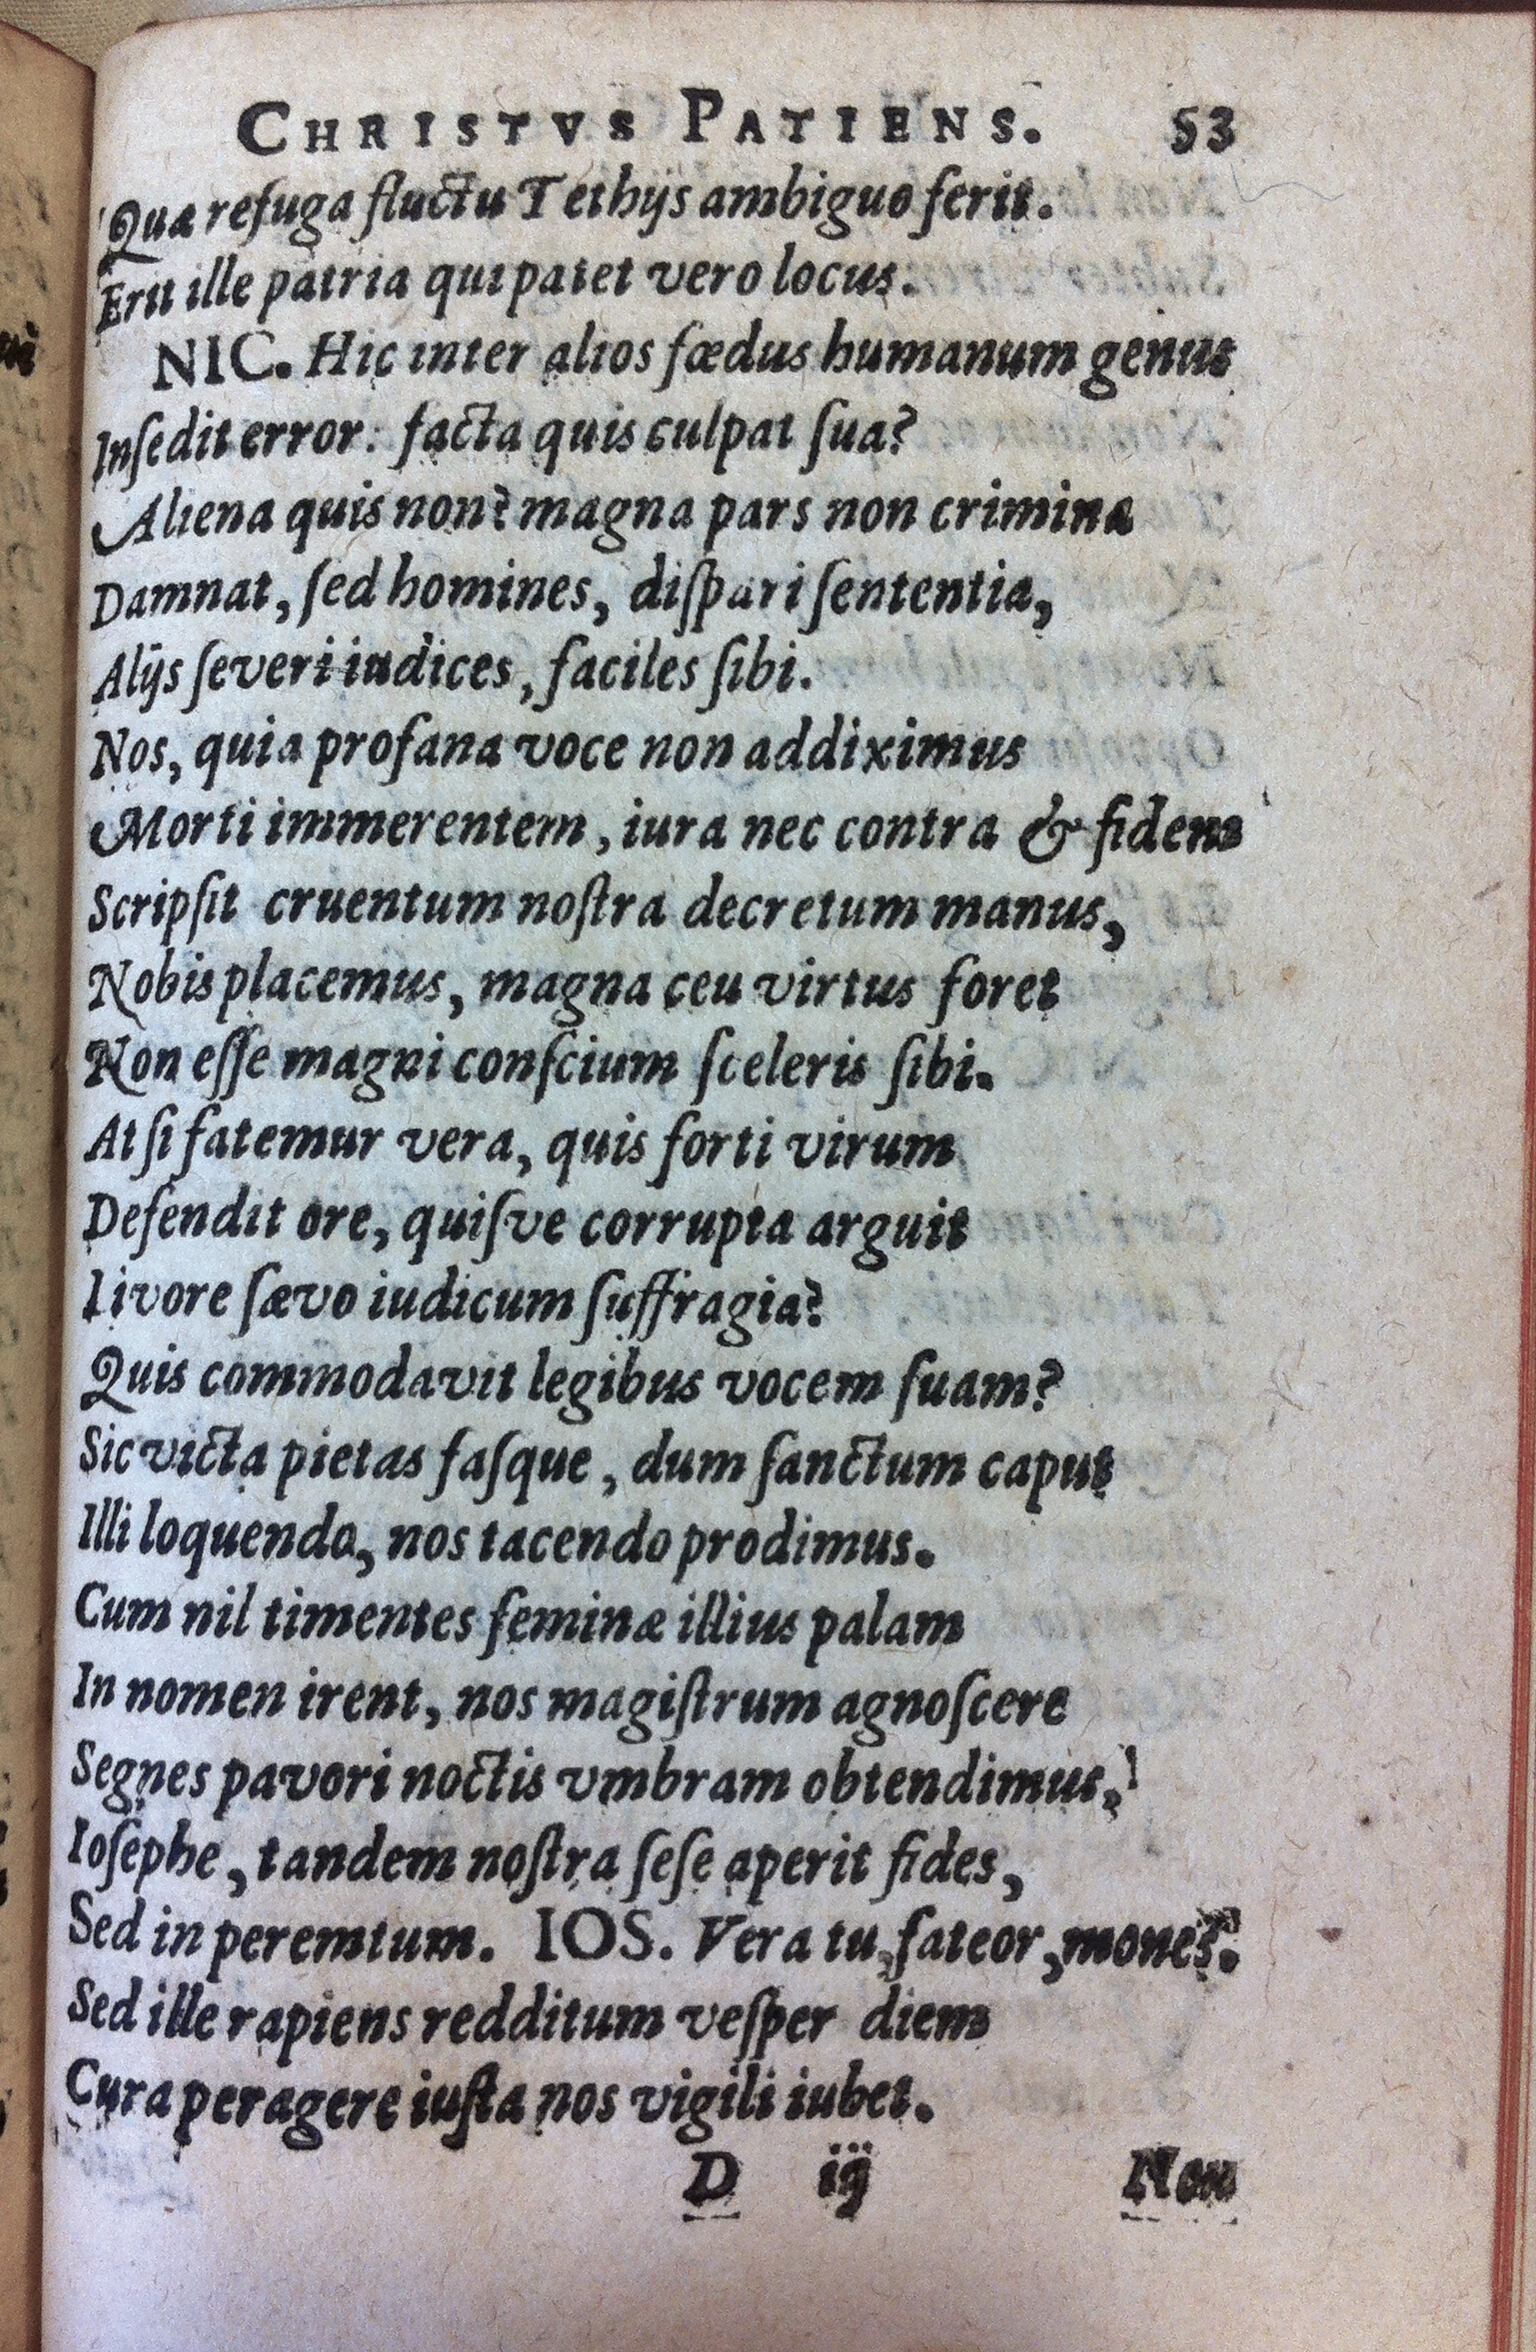 CHRISTVS PATIENS. 53
Quæ refuga fluctu Tethijs ambiguo ferit.
Erit ille patria qui patet vero locus.
NIC. Hic inter alios fœdus humanum genus
Inſedit error: facta quis culpat ſua?
Aliena quis non? magna pars non crimina
Damnat, ſed homines, diſpari ſententia,
Alijs ſeveri iudices, faciles ſibi.
Nos, quia profana voce non addiximus
Morti immerentem, iura nec contra & fidem
Scripſit cruentum noſtra decretum manus,
Nobis placemus, magna ceu virtus foret
Non eſſe magni conſcium ſceleris ſibi.
At ſi fatemur vera, quis forti virum
Defendit ore, quiſve corrupta arguit
Livore ſævo iudicum ſuffragia?
Quis commodavit legibus vocem ſuam?
Sic victa pietas faſque, dum ſanctum caput
Illi loquendo, nos tacendo prodimus.
Cum nil timentes feminæ illius palam
In nomen irent, nos magiſtrum agnoſcere
Segnes pavori noctis vmbram obtendimus,
Ioſephe, tandem noſtra ſeſe aperit fides,
Sed in peremtum. IOS. Vera tu, fateor, mones.
Sed ille rapiens redditum veſper diem
Cura peragere iuſta nos vigili iubet.
D iij Non